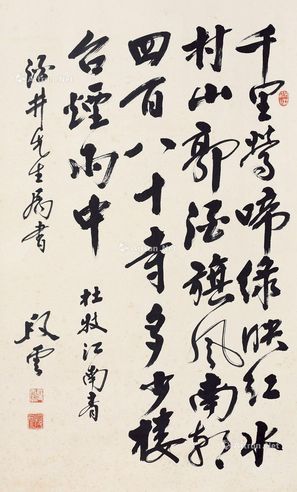 千里鶯啼绿映红水
村山郭酒旗风南朝
四百八十寺多少楼
台煙雨中
杜牧江南春
酒井先生书
段雲